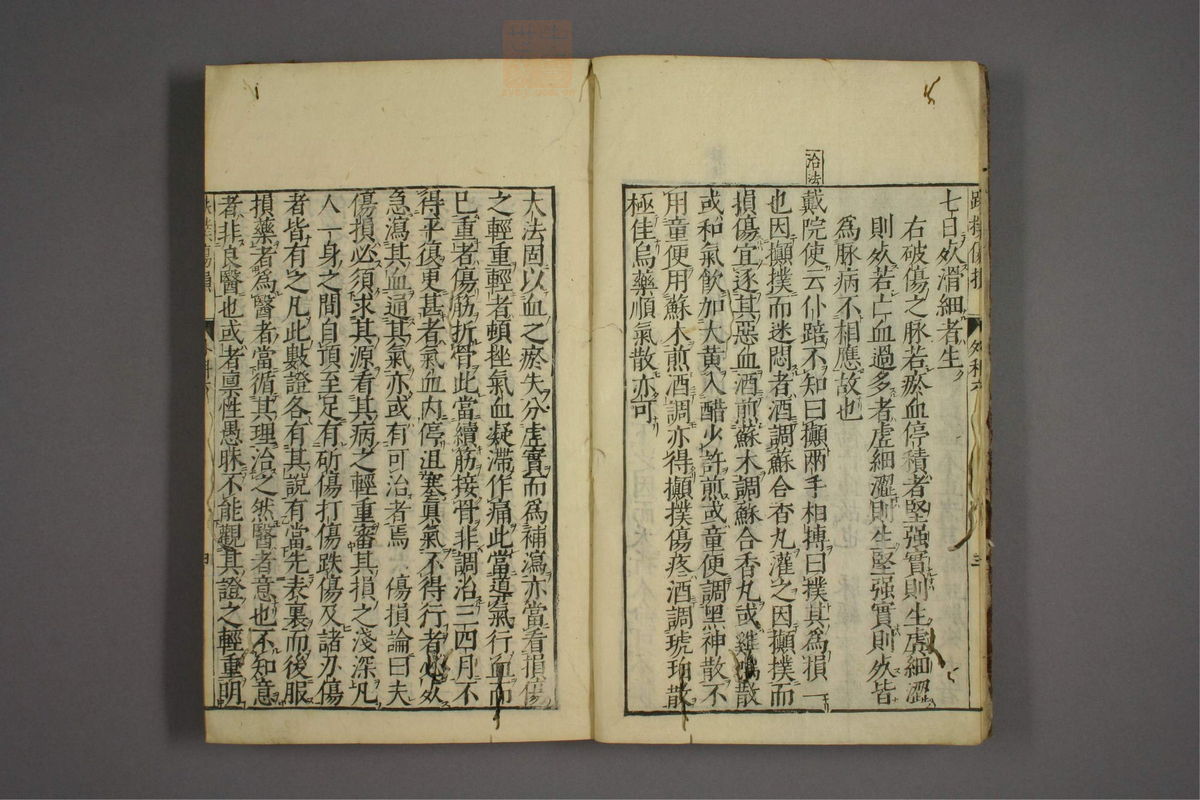 七日死滑細者生
右破傷之脉若瘀血停積者堅强實則生虚細澀
則死若亡血過多者虚細澀則生堅强實則死皆
爲脉病不相應故也
治法
戴院使云仆踣不知曰攧兩手相搏曰撲其爲損一
也因攧撲而迷悶者酒調蘇合香丸灌之因攧撲而
損傷宜逐其惡血酒煎蘇木調蘇合香丸或雞鳴散
或和氣飲加大黄入醋少許煎或童便調黑神散不
用童便用蘇木煎酒調亦得攧撲傷疼酒調琥珀散
極佳烏藥順氣散亦可
大法固以血之瘀失分虚實而爲補瀉亦當看損傷
之輕重輕者頓挫氣血凝滯作痛此當導氣行血而
已重者傷筋折骨此當續筋接骨非調治三四月不
得平復更甚者氣血内停沮塞眞氣不得行者必死
急瀉其血通其氣亦或有可治者焉 傷損論曰夫
傷損必須求其源看其病之輕重審其損之淺深凡
人一身之間自頂至足有斫傷打傷跌傷及諸刃傷
者皆有之凡此數證各有其說有當先表裏而後服
損藥者爲醫者當循其理治之然醫者意也不知意
者非良醫也或者禀性愚昧不能觀其證之輕重明